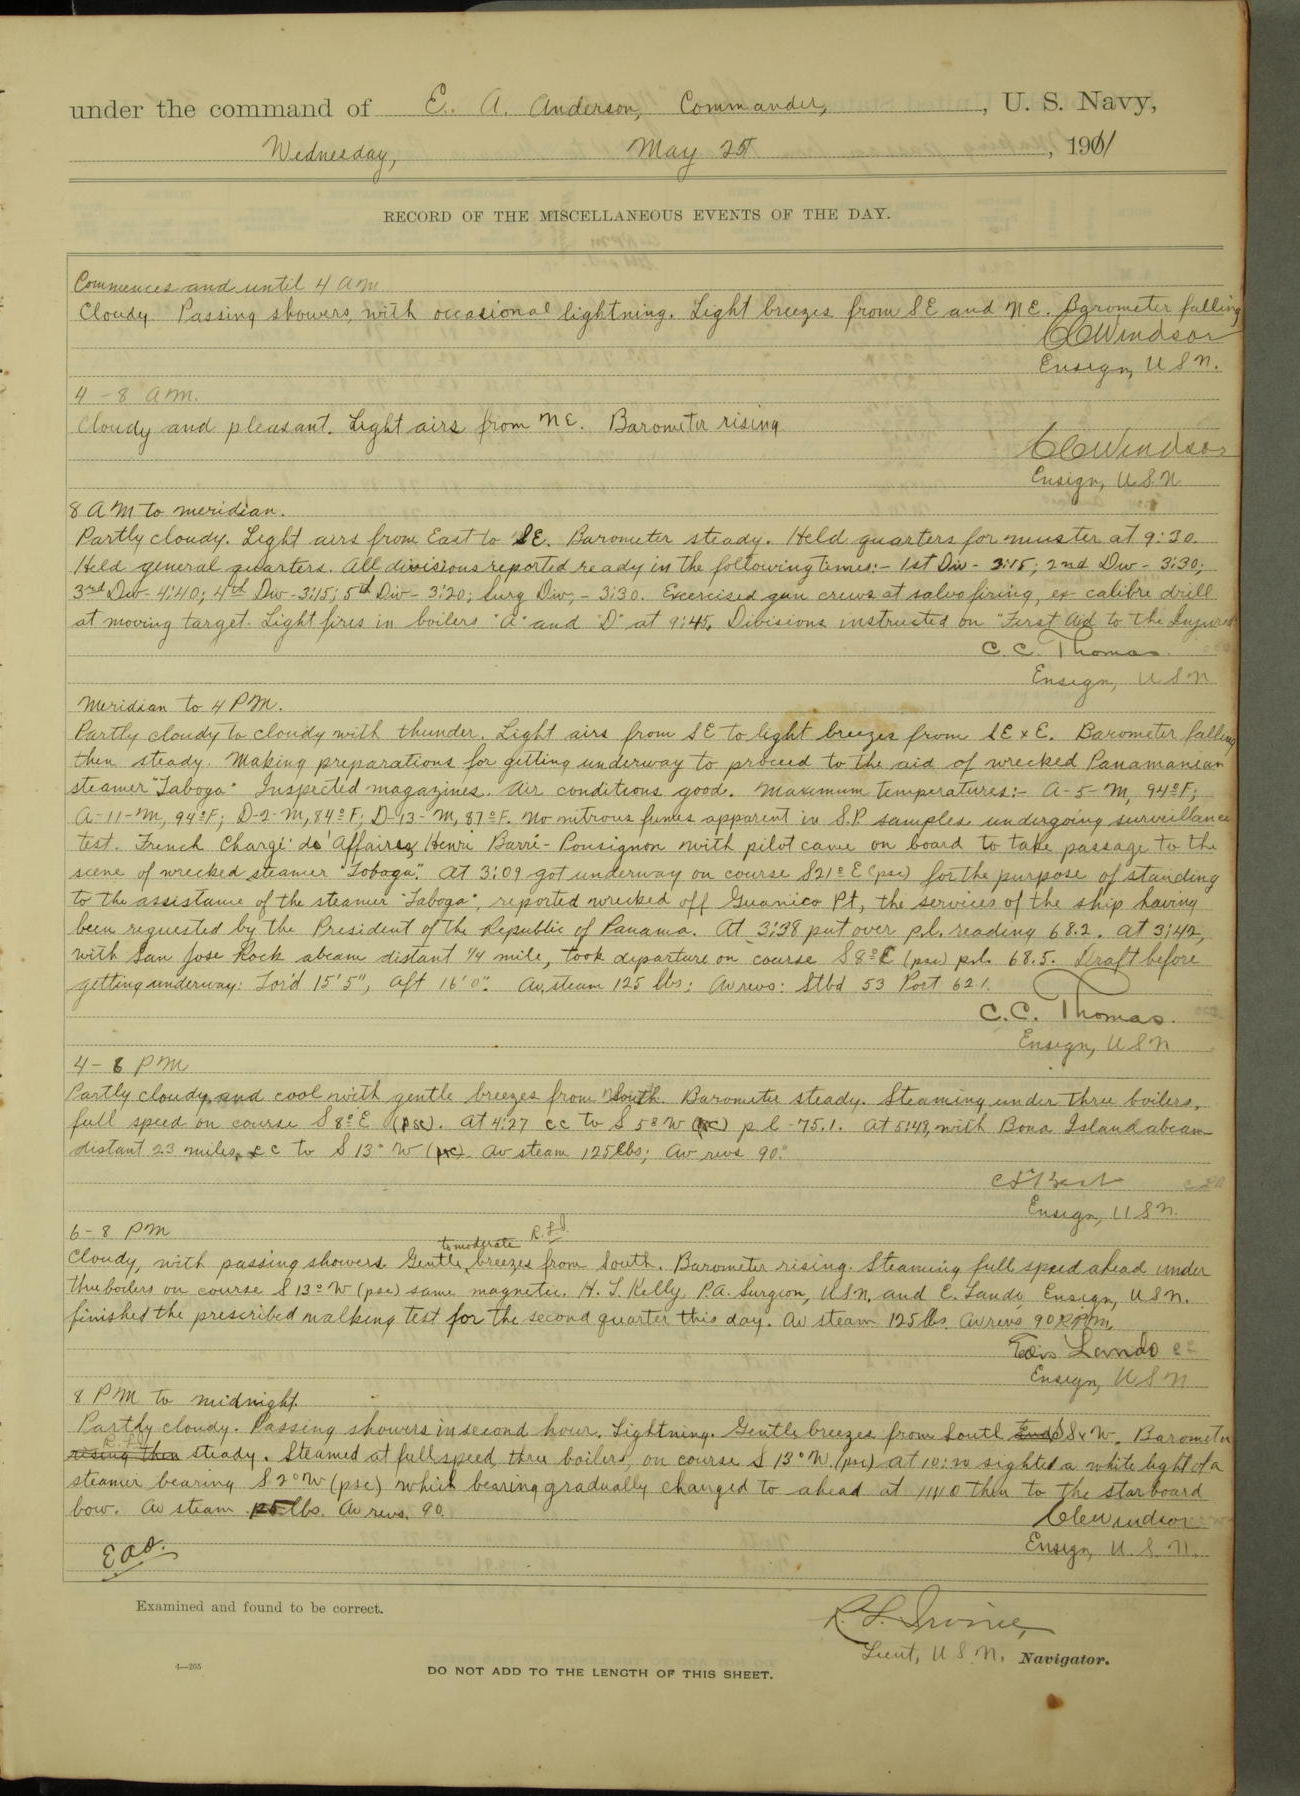 under the command of E. A. Anderson, Commander, , U. S. Navy,
Wednesday, May 25 , 1911
RECORD OF THE MISCELLANEOUS EVENTS OF THE DAY.
Commences and until 4 AM
Cloudy Passing showers, with occasional lightning. Light breezes from SE and NE. Barometer falling
CC Windsor
Ensign, U S N.
4 - 8 AM.
Cloudy and pleasant. Light airs from NE. Barometer rising
CC Windsor
Ensign, U S N
8 AM to meridian.
Partly cloudy. Light airs from East to SE. Barometer steady. Held quarters for muster at 9:30.
Held general quarters. All divisions reported ready in the following times:- 1st Div - 3:15; 2nd Div - 3:30;
3rd Div - 4:40; 4th Div - 3:15; 5th Div - 3:20; Surg Div, - 3:30. Excercised gun crews at salvo firing, ex- calibre drill
at moving target. Light fires in boilers "A" and "D" at 9:45. Divisions instructed on "First Aid to the Injured
C. C. Thomas.
Ensign, U S N
Meridian to 4 PM.
Partly cloudy to cloudy with thunder. Light airs from SE to light breezes from SE x E. Barometer falling
then steady. Making preparations for getting underway to proceed to the aid of wrecked Panamanian
steamer "Taboga" Inspected magazines. Air conditions good. Maximum temperatures:- A-5-M, 94°F;
A-11-M, 94°F; D-2-M, 84°F; D-13-M, 87°F. No nitrous fumes apparent in S.P. samples undergoing surveillance
test. French Chargé de Affaires Henri Barré-Ponsignon with pilot came on board to take passage to the
scene of wrecked steamer "Taboga". At 3:09 got underway on course S21°E (psc) for the purpose of standing
to the assistance of the steamer "Taboga", reported wrecked off Guanico Pt, the services of the ship having
been requested by the President of the Republic of Panama. At 3:38 put over p.l. reading 68.2. At 3:42,
with San Jose Rock abeam distant 1/4 mile, took departure on course S8°E (psc) p.l. 68.5. Draft before
getting underway: For'd 15'5", Aft 16'0". Av. steam 125 lbs: Av revs: Stbd 53 Port 62.1.
C. C. Thomas.
Ensign, U S N
4 - 6 PM
Partly cloudy and cool with gentle breezes from South. Barometer steady. Steaming under three boilers,
full speed on course S 8° E (psc). At 4:27 cc to S 5° W (psc) p l - 75.1. At 5:48, with Bona Island abeam
distant 2.3 miles, cc to S 13° W (psc). Av steam 125 lbs; Av revs 90.
Ensign, U S N.
6 - 8 PM R.L.I.
to moderate
Cloudy, with passing showers. Gentle breezes from South. Barometer rising. Steaming full speed ahead under
three boilers on course S 13° W (psc) same magnetic. H. L. Kelly P.A. Surgeon, U S N, and E. Lando Ensign, U S N.
finished the prescribed walking test for the second quarter this day. Av steam 125 lbs. Av revs 90 RPM.
Lando
Ensign, U S N
8 PM to midnight.
Partly cloudy. Passing showers in second hour. Lightning. Gentle breezes from South and S x W. Barometer
R.L.I.
rising then steady. Steamed at full speed, three boilers, on course S 13° W. (psc) At 10:20 sighted a white light of a
steamer bearing S 2° W (psc) which bearing gradually changed to ahead at 11:40 then to the starboard
bow. Av steam 125 lbs. Av revs. 90.
CC Windsor
Ensign, U. S. N.
EAA.
Examined and found to be correct.
R. L. Irvine,
Lieut, U S. N. Navigator.
4—265
DO NOT ADD TO THE LENGTH OF THIS SHEET.